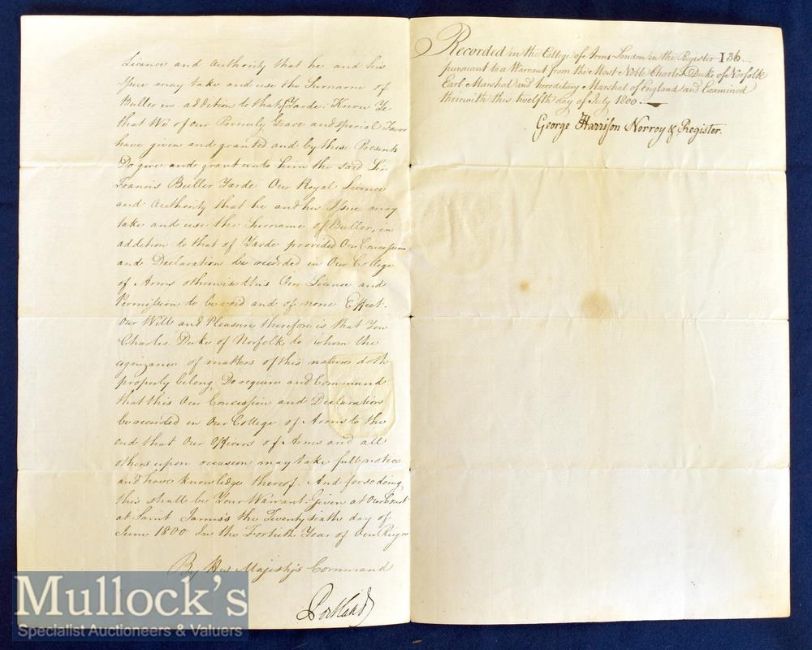 Licence and Authority that he and his
Issue may take and use the Surname of
Buller in addition to that of Yarde. Know Ye
that We of our Princely Grace and special Favor
have given and granted and by these Presents
Do give and grant unto him the said Sir
Francis Buller Yarde Our Royal Licence
and Authority that he and his Issue may
take and use the Surname of Buller, in
addition to that of Yarde provided Our Concession
and Declaration be recorded in Our College
of Arms otherwise this Our Licence and
Permission to be void and of none Effect.
Our Will and Pleasure therefore is that You
Charles Duke of Norfolk to whom the
cognizance of matters of this nature doth
properly belong Do require and Command
that this Our Concession and Declaration
be recorded in Our College of Arms to the
end that Our Officers of Arms and all
others upon occasion may take full notice
and have knowledge thereof. And for so doing
this shall be Your Warrant Given at Our Court
at Saint James's the Twenty sixth day of
June 1800 In the Fortieth Year of Our Reign
By His Majesty's Command
Portland
Recorded in the College of Arms London in the Register I 36
pursuant to a Warrant from the Most Noble Charles Duke of Norfolk
Earl Marshal and hereditary Marshal of England and Examined
therewith this twelfth day of July 1800.
George Harrison Norroy & Register.
Mullock's
Specialist Auctioneers & Valuers